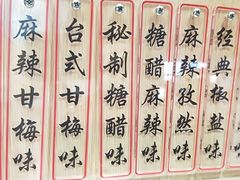 麻辣甘梅味
台式甘梅味
秘制糖醋味
糖醋麻辣味
麻辣孜然味
经典椒盐味